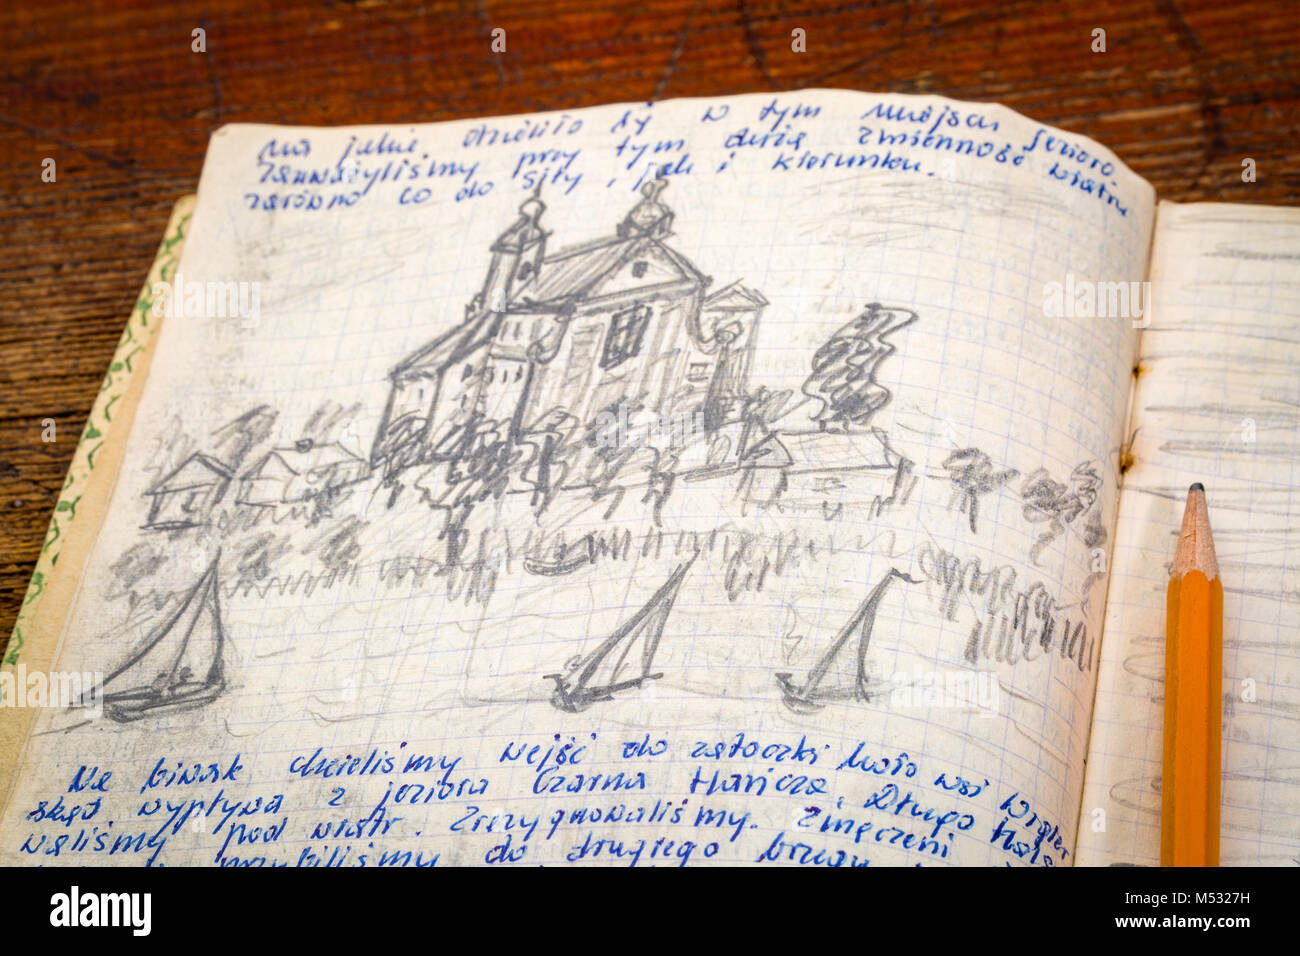 na jakie dzieliło się w tym miejscu jezioro.
zauważyliśmy przy tym dużą zmienność wiatru
zarówno co do siły, jak i kierunku.
Na biwak chcieliśmy wejść do zatoczki koło wsi
skąd wypływa z jeziora Czarna Hańcza. Długo hals
waliśmy pod wiatr. Zrezygnowaliśmy. Zmęczeni
przybiliśmy do drugiego brzegu
alamy
Image ID: M5327H
www.alamy.com